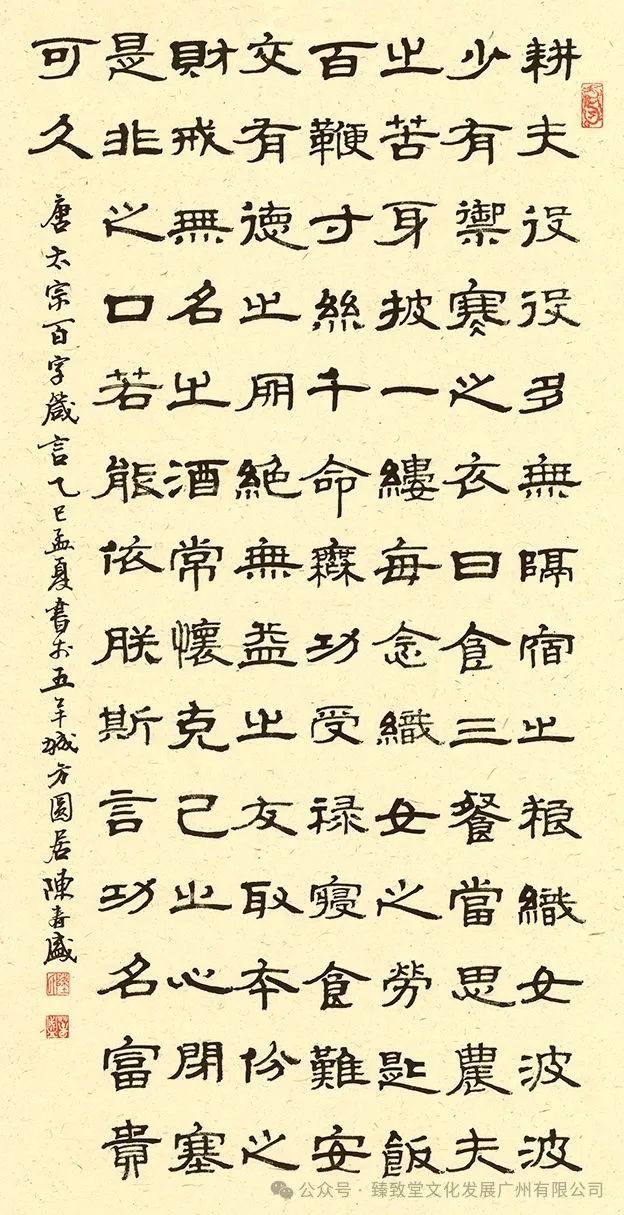 耕夫役役多無隔宿之粮織女波波
少有禦寒之衣日食三餐當思農夫
之苦身披一縷每念織女之勞匙飯
百鞭寸絲千命無功受禄寝食難安
交有德之朋絕無益之友取本份之
財戒無名之酒常懷克己之心閉塞
是非之口若能依朕斯言功名富貴
可久
唐太宗百字箴言乙巳孟夏書於五羊城方圓居陳壽盛
公众号 · 臻致堂文化发展广州有限公司